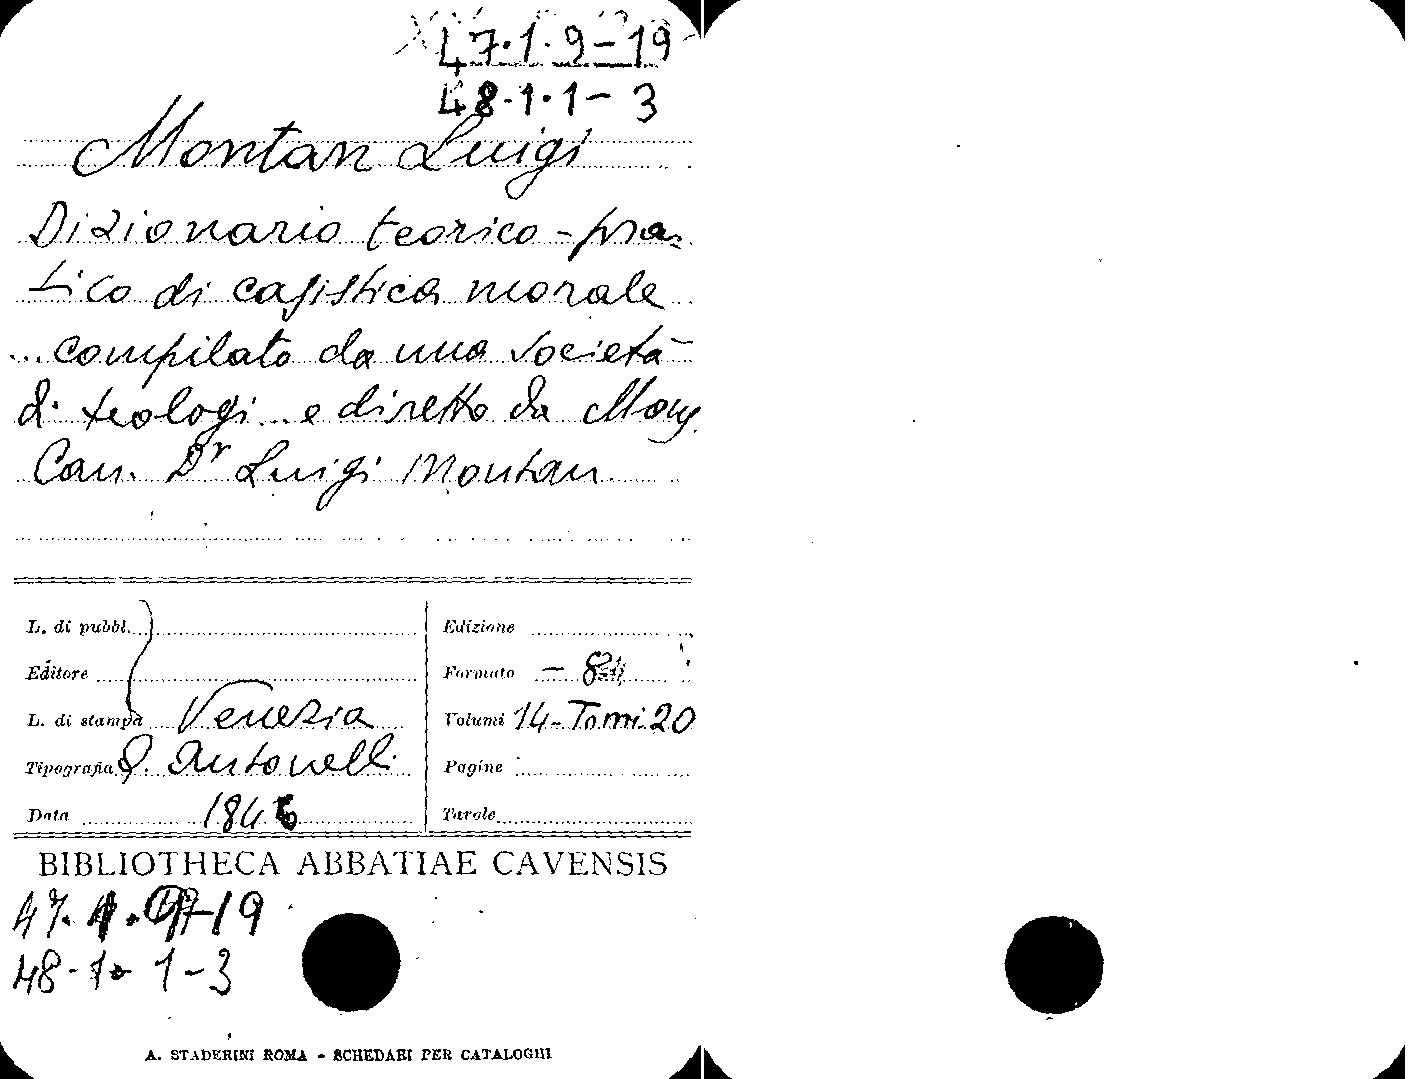 47.1.9-19
48.1.1-3
Montan Luigi
Dizionario teorico-pra-
tico di casistica morale
...compilato da una società
di teologi...e diretto da Mons.
Can. Dr Luigi Montan
L. di pubbl. Edizione
Editore Formato - 8°
L. di stampa Venezia Volumi 14-Tomi 20
Tipografia G. Antonelli Pagine
Data 1846 Tavole
BIBLIOTHECA ABBATIAE CAVENSIS
47.1.9-19
48-1-1-3
A. STADERINI ROMA - SCHEDARI PER CATALOGHI